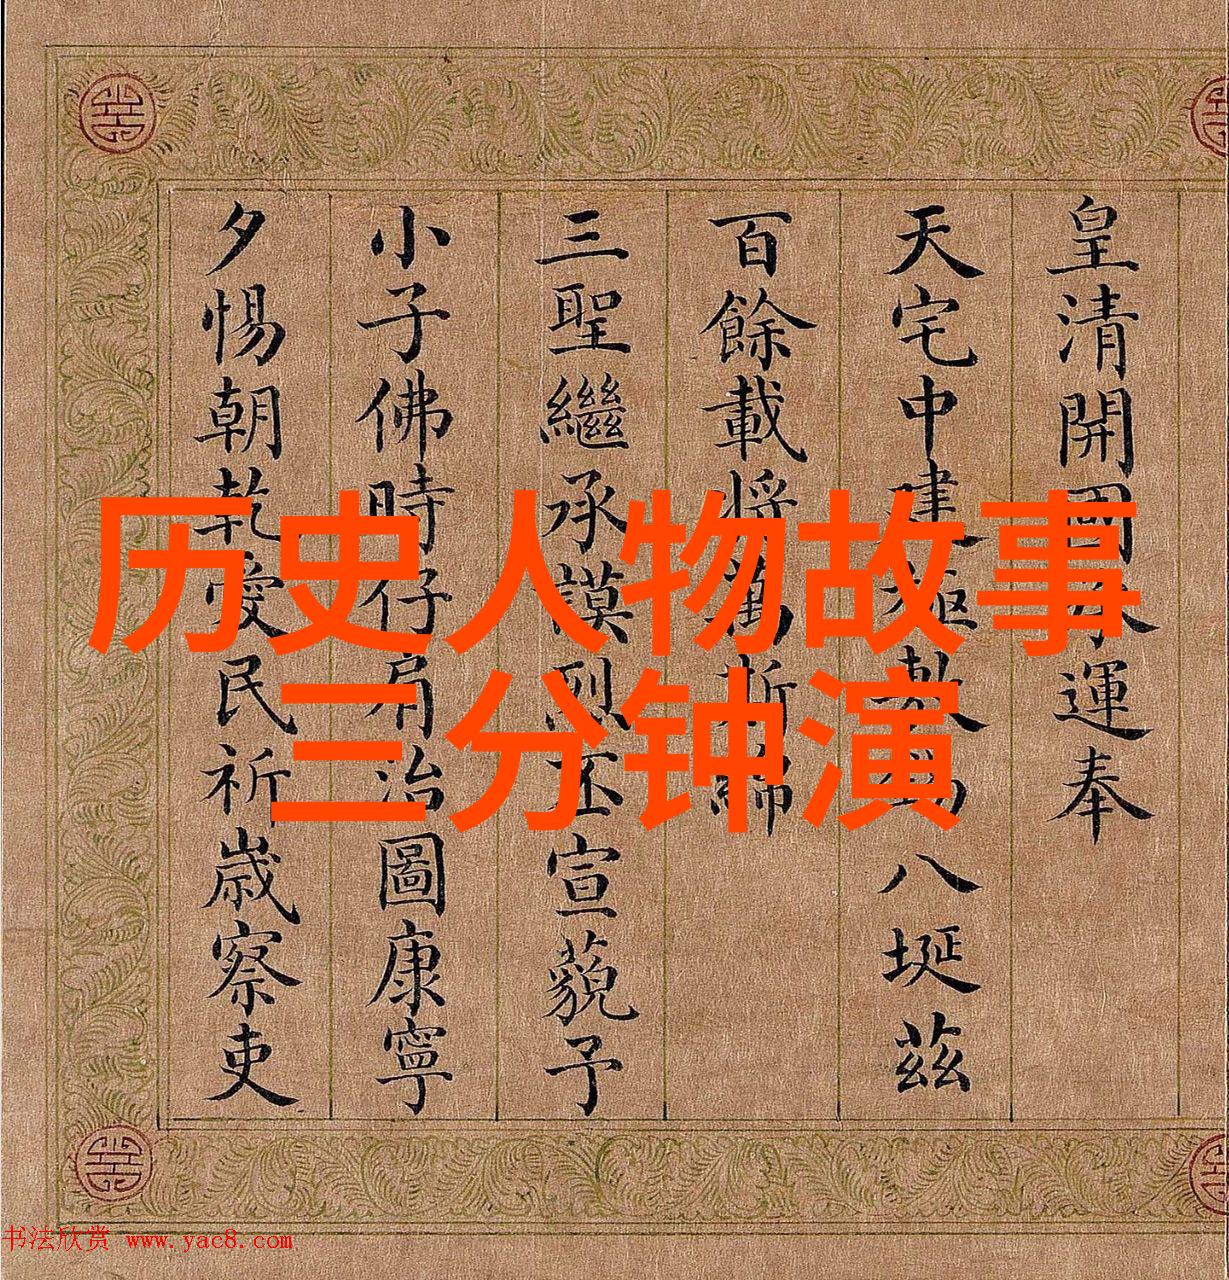 皇清開國運奉
天宅中建極敷八埏茲
百餘載將萬斯綿
三聖繼承謨烈丕宣藐予
小子佛時仔肩治圖康寧
夕惕朝乾愛民祈歲察吏
历史人物故事
三分钟演
书法欣赏 www.yac8.com